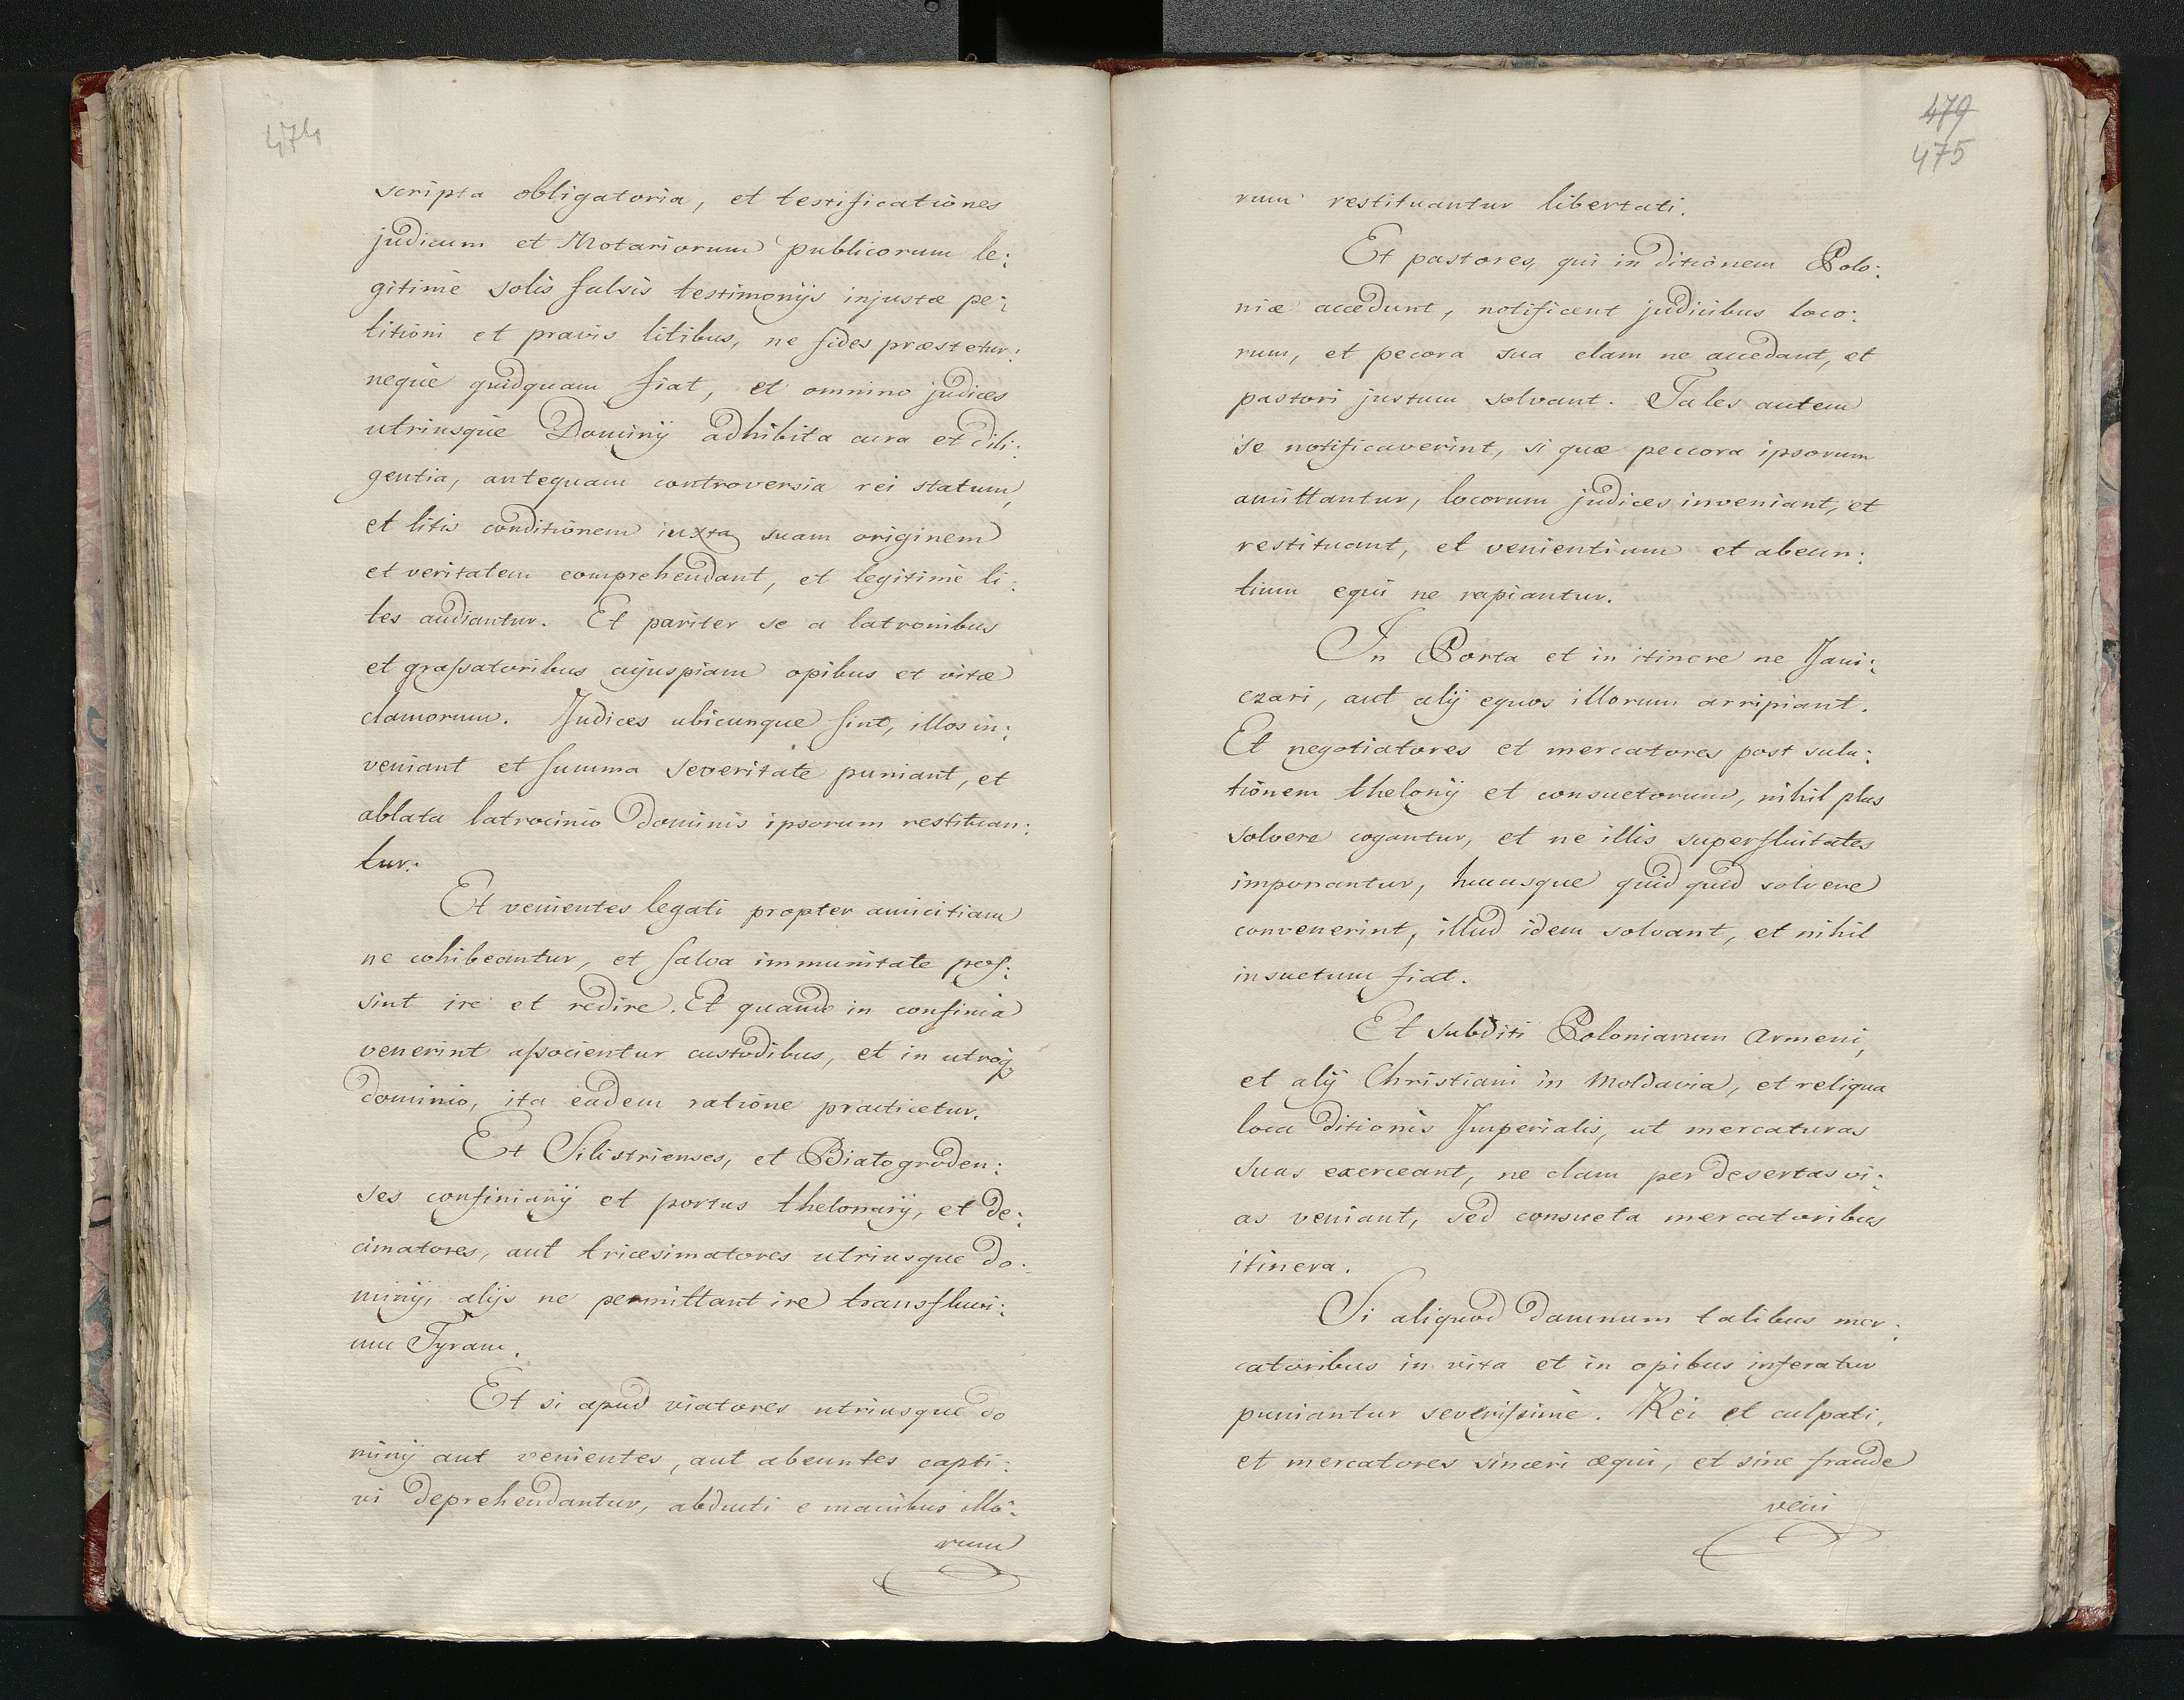 474
scripta obligatoria, et testificationes
judicum et Notariorum publicorum le:
gitime solis falsis testimonijs injustæ pe:
titioni et pravis litibus, ne fides præstetur:
neque quidquam fiat, et omnino judices
utriusque Dominij adhibita cura et dili:
gentia, antequam controversia rei statum,
et litis conditionem iuxta suam originem
et veritatem comprehendant, et legitime li:
tes audiantur. Et pariter se a latronibus
et graſsatoribus cujuspiam opibus et vitæ
clamorum. Judices ubicunque sint, illos in:
veniant et summa severitate puniant, et
ablata latrocinio Dominis ipsorum restituan:
tur.
Et venientes legati propter amicitiam
ne cohibeantur, et salva immunitate poſ:
sint ire et redire. Et quando in confinia
venerint aſsocientur custodibus, et in utroq
dominio, ita eadem ratione practicetur.
Et Silistrienses, et Biatogroden:
ses confiniarij et portus thelonarij, et de:
cimatores, aut tricesimatores utriusque do:
minij, alijs ne permittant ire transfluvi:
um Tyram.
Et si apud viatores utriusque do
minij aut venientes, aut abeuntes capti:
vi deprehendantur, abducti e manibus illo:
rum
479
475
rum restituantur libertati.
Et pastores, qui in ditionem Polo:
niæ accedunt, notificent judicibus loco:
rum, et pecora sua clam ne accedant, et
pastori justum solvant. Tales autem
se notificaverint, si quæ peccora ipsorum
amittantur, locorum judices inveniant, et
restituant, et venientium et abeun:
tium equi ne rapiantur.
In Porta et in itinere ne Jani:
czari, aut alij equos illorum arripiant.
Et negotiatores et mercatores post solu:
tionem thelonij et consuetorum, nihil plus
solvere cogantur, et ne illis superfluitates
imponantur, hucusque quid quid solvere
convenerint, illud idem solvant, et nihil
insuetum fiat.
Et subditi Poloniarum Armeni,
et alij Christiani in Moldavia, et reliqua
loca ditionis Imperialis, ut mercaturas
suas exerceant, ne clam per desertas vi:
as veniant, sed consueta mercatoribus
itinera.
Si aliquod damnum talibus mer:
catoribus in vita et in opibus inferatur
puniantur severiſsime. Rei et culpati,
et mercatores sinceri æqui, et sine fraude
veni